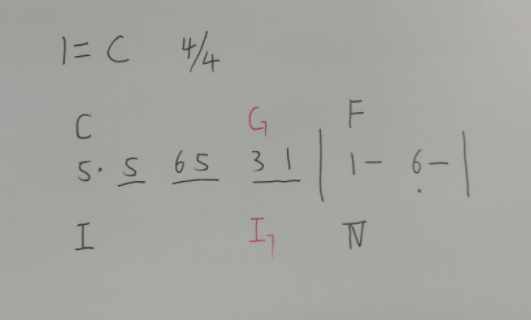 1=C 4/4
C G7 F
5· 5 65 31 | 1- 6- |
I I7 IV